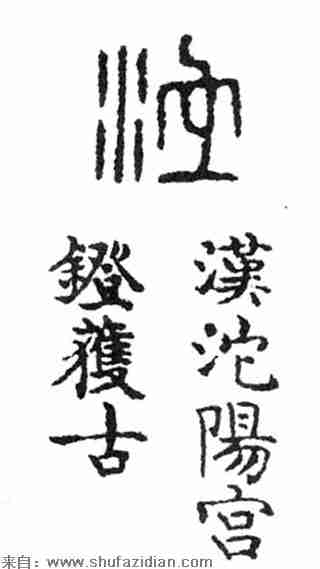 漢沱陽宫
鐙獲古
来自：www.shufazidian.com